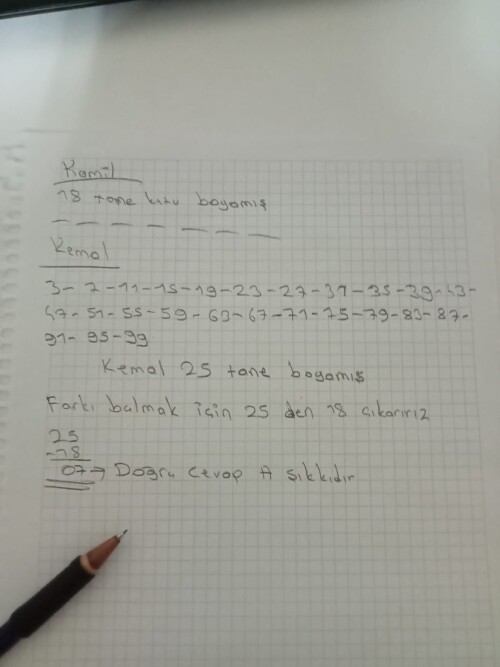 Kamil
18 tane kutu boyamış
Kemal
3-7-11-15-19-23-27-31-35-39-43-
47-51-55-59-63-67-71-75-79-83-87-
91-95-99
Kemal 25 tane boyamış
Farkı bulmak için 25 den 18 çıkarırız
25
-18
07→ Doğru cevap A şıkkıdır